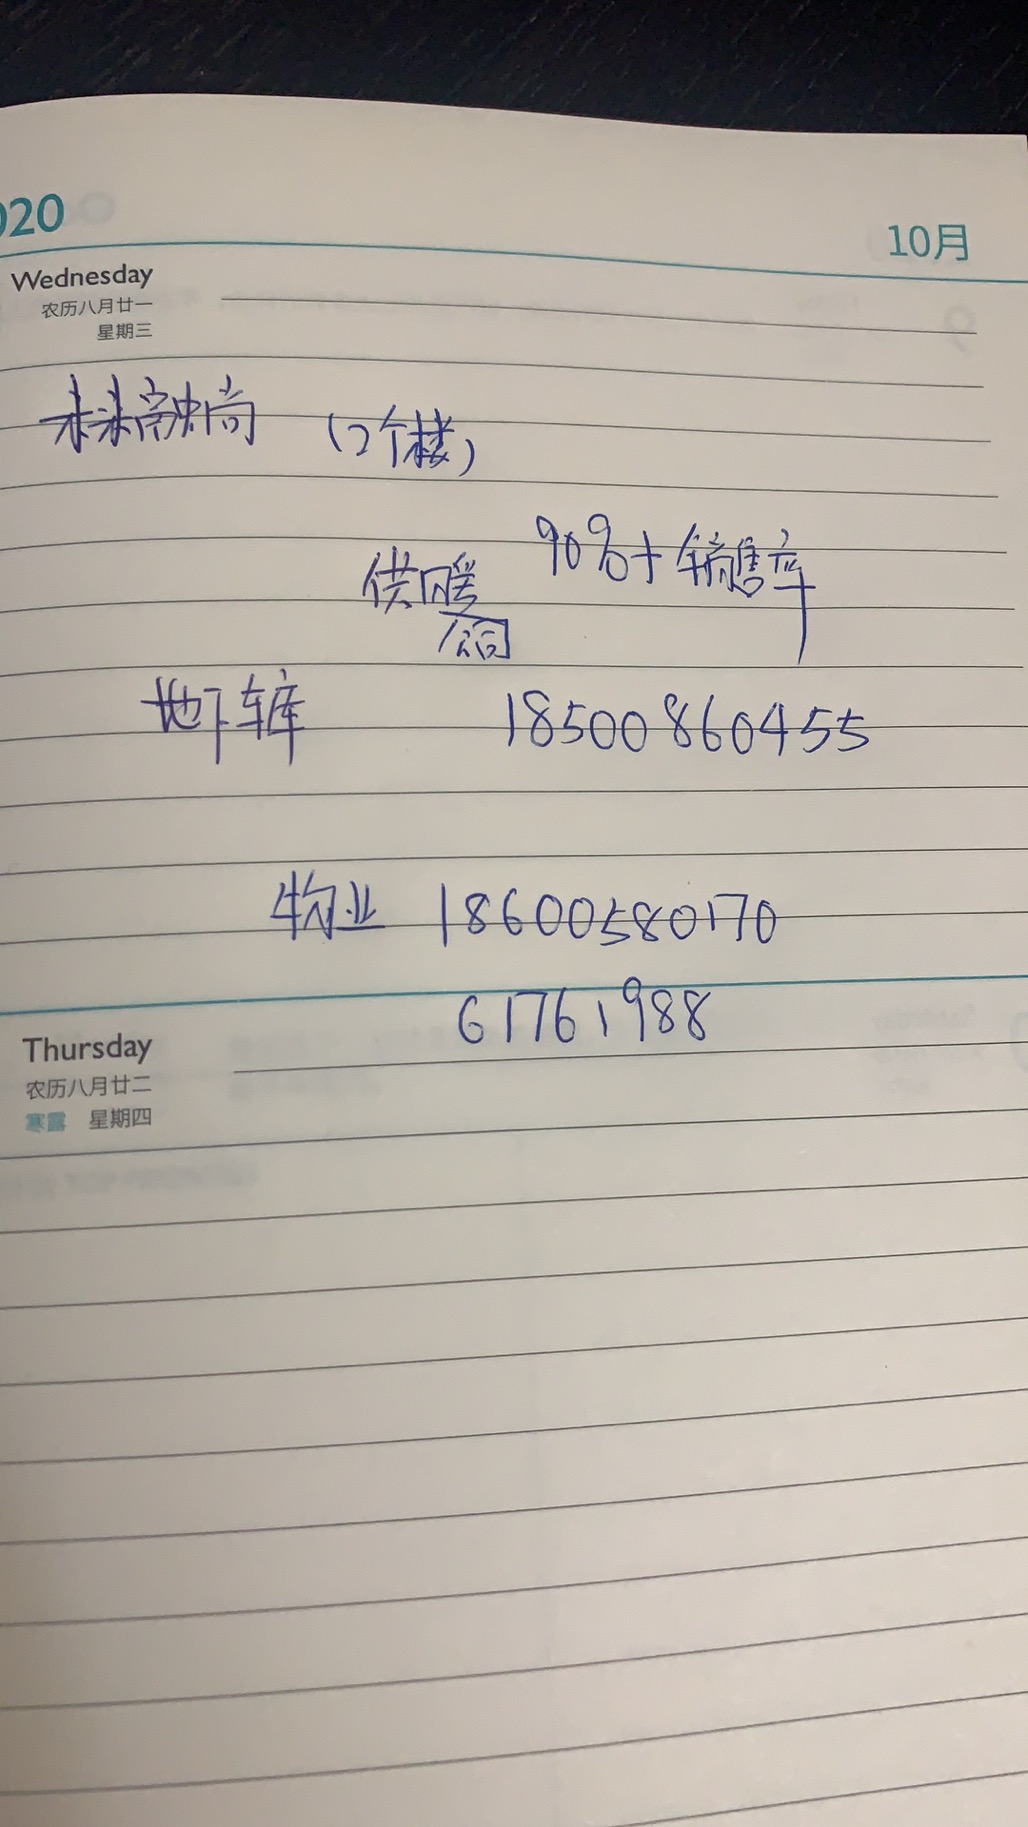 020 10月
Wednesday
农历八月廿一
星期三
未来融尚 (2个楼)
90%+销售率
供暖
公司
地下车库 18500860455
物业 18600580170
61761988
Thursday
农历八月廿二
寒露 星期四